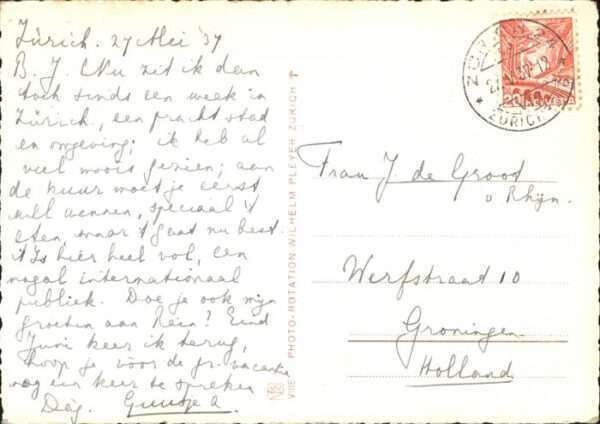 Zürich. 27 Mei '37
B. J. Nu zit ik dan
toch sinds een week in
Zürich, een pracht stad
en omgeving; ik heb al
veel moois gezien; aan
de kuur moet je eerst
wennen, speciaal 't
eten, maar 't gaat nu best.
't Is hier heel vol, een
nogal internationaal
publiek. Doe je ook mijn
groeten aan Rein? Eind
Juni keer ik terug,
hoop je vóór de gr. vacantie
nog een keer te spreken
Dag.
PHOTO-ROTATION WILHELM PLEYER ZÜRICH 7
ZÜRICH
20
Frau J de Groot
v Rhijn.
Werfstraat 10
Groningen
Holland